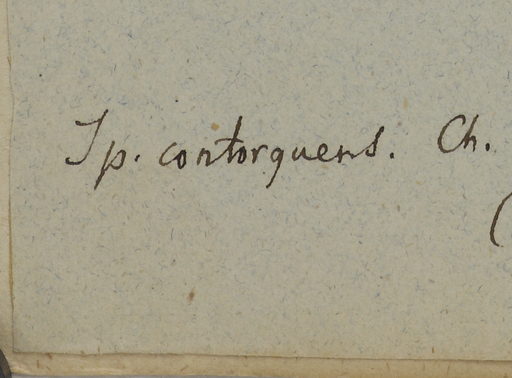 Ip. contorquens. Ch.
(